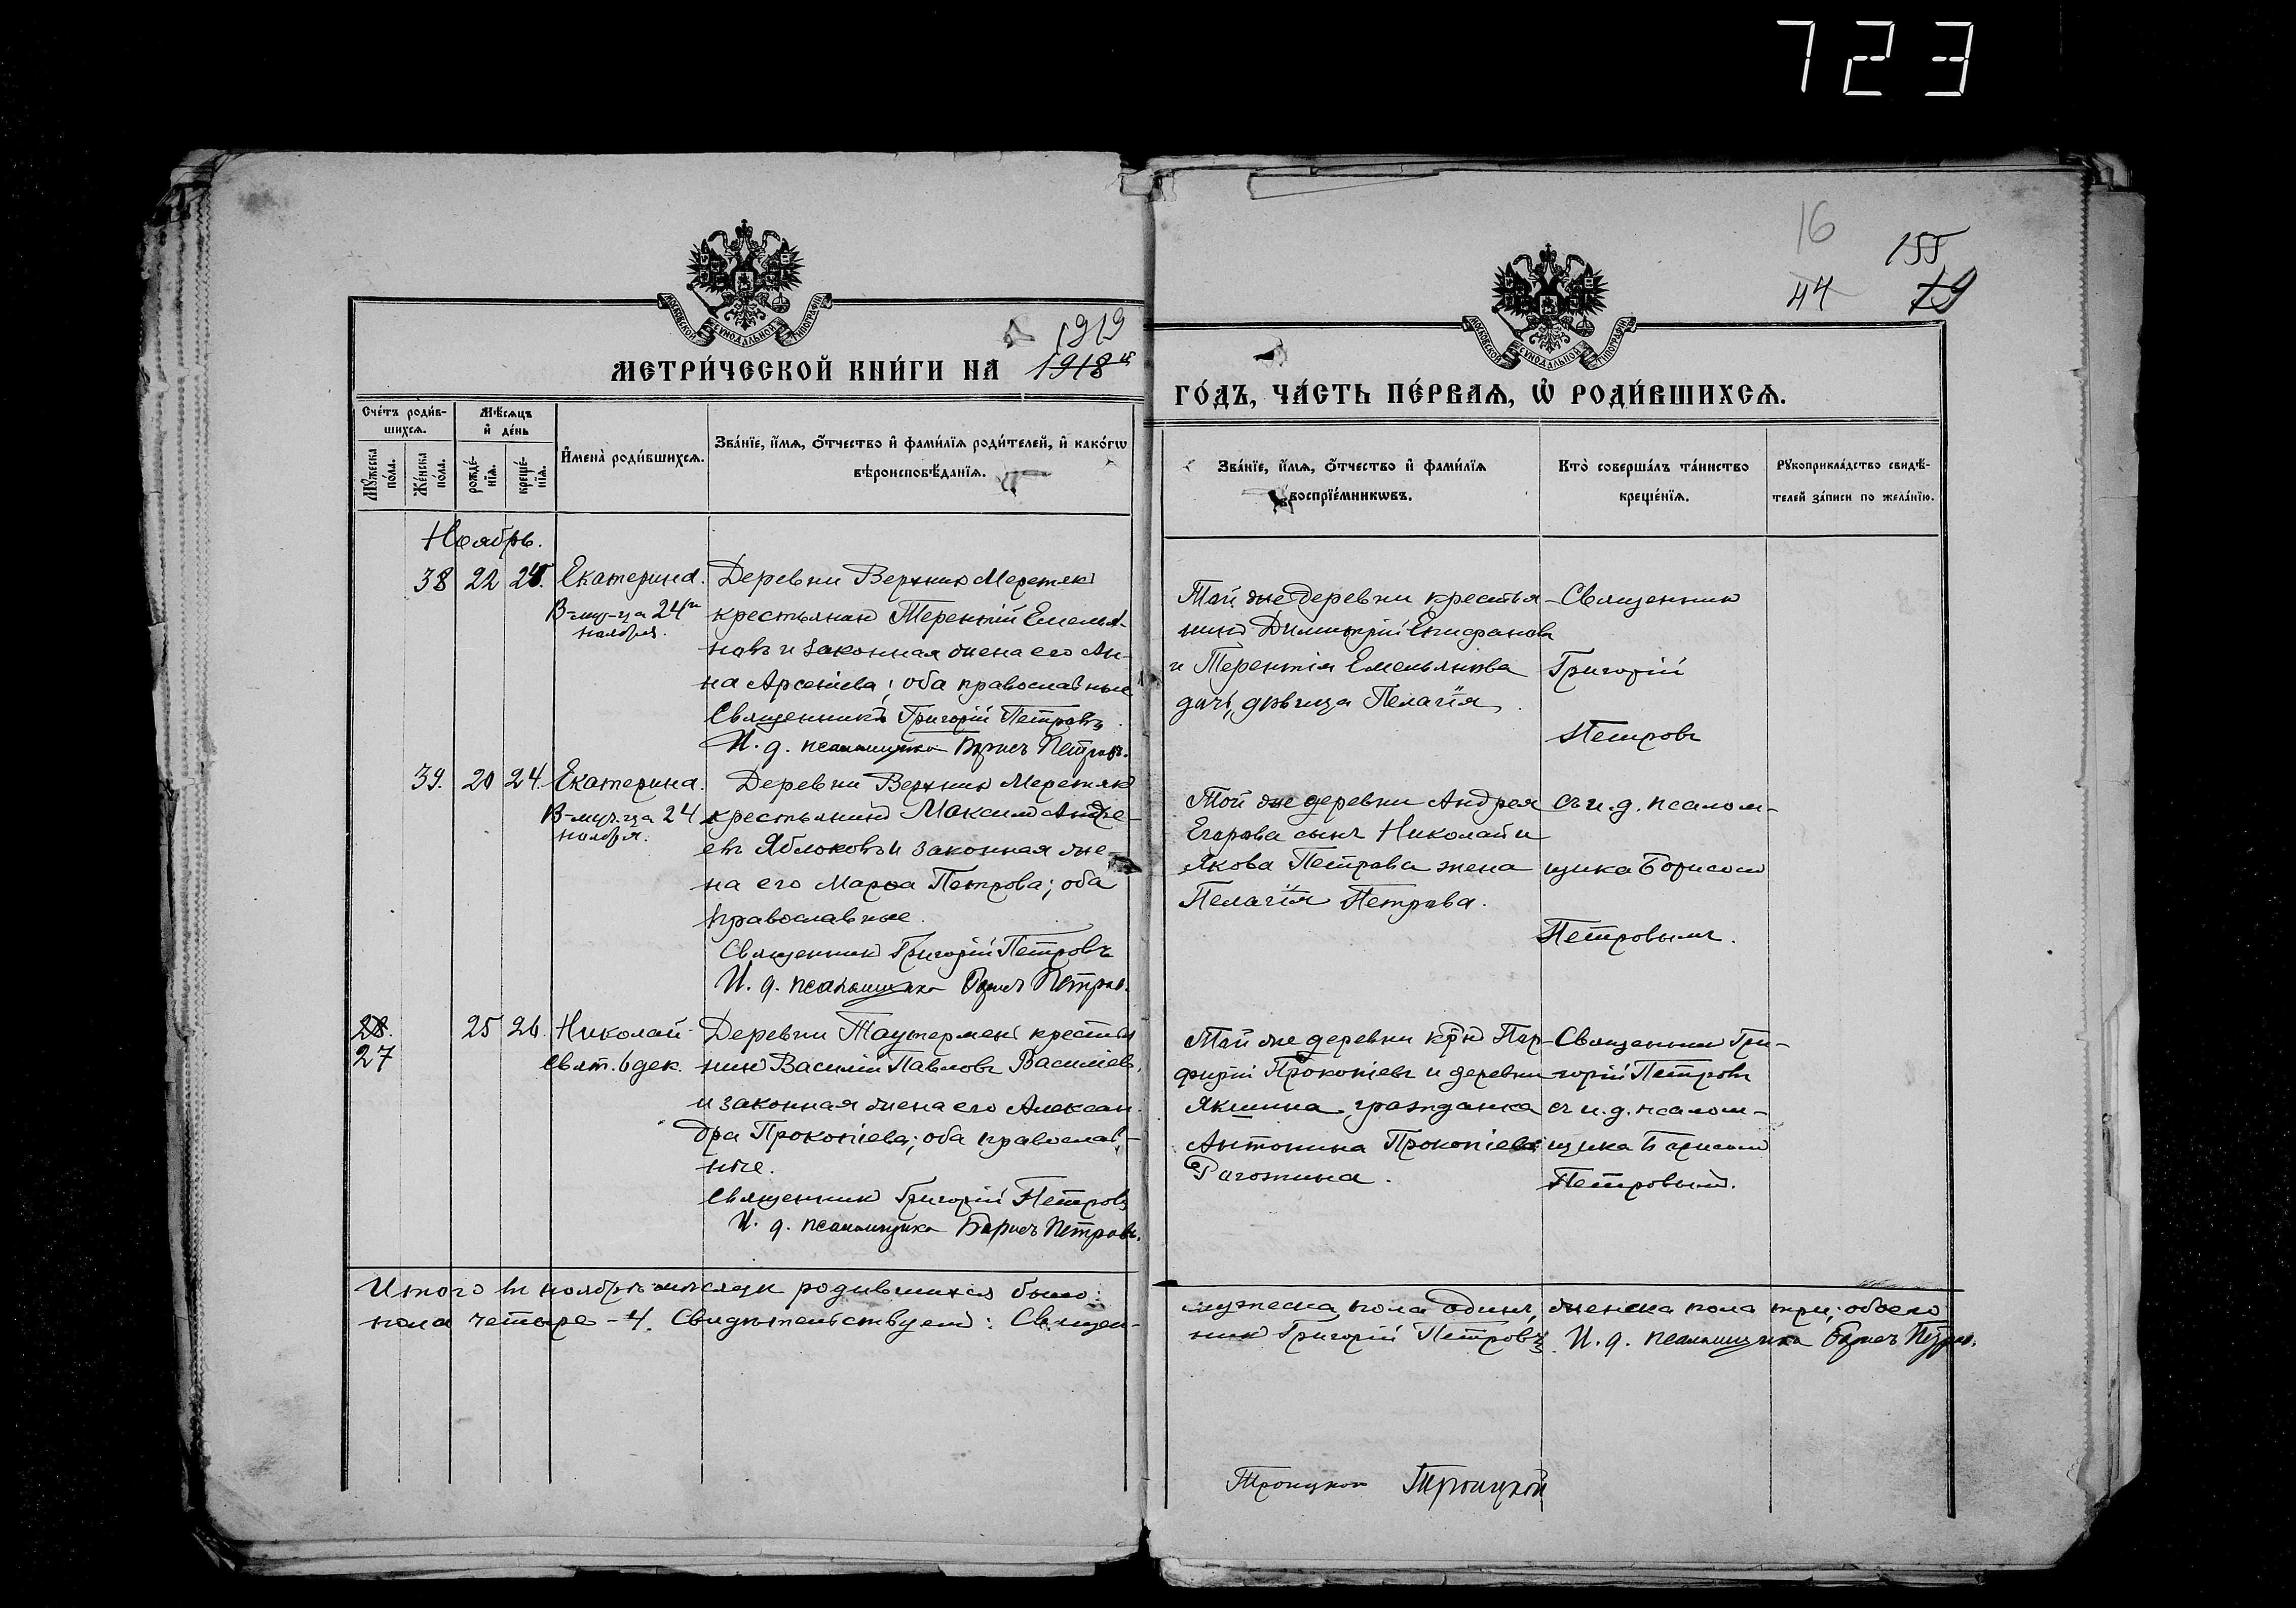 723
16
155
44
79
МОСКОВСКОЙ СѴНОДАЛЬНОЙ ТИПОГРАФІИ
МОСКОВСКОЙ СѴНОДАЛЬНОЙ ТИПОГРАФІИ
1919
МЕТРИ́ЧЕСКОЙ КНИ́ГИ НА 1918й
ГО́ДЪ, ЧА́СТЬ ПЕ́РВАѦ, Ѡ҆ РОДИ́ВШИХСѦ.
Сче́тъ роди́в-
шихсѧ.
Мѣ́сѧцъ
и҆ де́нь
Мꙋ́жеска по́ла.
Же́нска по́ла.
рожде́-
нїѧ.
креще́-
нїѧ.
И҆мена̀ роди́вшихсѧ.
Зва́нїе, и҆́мѧ, ѻ҆́тчество и҆ фами́лїѧ роди́телей, и҆ како́гѡ
вѣроисповѣ́данїѧ.
Зва́нїе, и҆́мѧ, ѻ҆́тчество и҆ фами́лїѧ
воспрїе́мникѡвъ.
Кто̀ соверша́лъ та́инство
креще́нїѧ.
Рꙋкоприкла́дство свидѣ́-
телей за́писи по жела́нїю.
Ноябрь.
38 22 24. Екатерина. Деревни Верхних Меретяк
В-му-ца 24го крестьянин Терентій Емелья-
ноября.
новъ и законная жена его Ан-
на Арсеніева; оба православные
Священникъ Григорій Петровъ.
И. д. псаломщика Борисъ Петровъ.
Той же деревни крестья-
нин Димитрій Епифановъ
и Терентія Емельянова
дочь, дѣвица Пелагія.
Священник
Григорій
Петровъ
39. 20 24. Екатерина. Деревни Верхних Меретяк
В-муч-ца 24 крестьянин Максим Андре-
ноября.
евъ Яблоковъ и законная же-
на его Марѳа Петрова; оба
православные.
Священник Григорій Петровъ
И. д. псаломщика Борисъ Петров.
Той же деревни Андрея
Егорова сынъ Николай и
Якова Петрова жена
Пелагія Петрова.
съ и. д. псалом-
щика Борисом
Петровымъ.
28.
27
25 26. Николай Деревни Таутермен крестья
свят. 6 дек. нин Василій Павловъ Василіев,
и законная жена его Алексан-
дра Прокопіева; оба православ-
ные.
Священник Григорій Петровъ
И. д. псаломщика Борисъ Петровъ.
Той же деревни кр-н Пор-
фирій Прокопіевъ и деревни
Якшина гражданка
Антонина Прокопіева
Рагожина.
Священник Гри-
горій Петровъ
съ и. д. псалом-
щика Борисом
Петровым.
Итого въ ноябрѣ мѣсяцѣ родившихся было: мужеска пола одинъ, женска пола три; обоего
пола четыре - 4. Свидѣтельствуем: Священ-
ник Григорій Петровъ. И. д. псаломщика Борисъ Петров.
Троицкой Троицкой